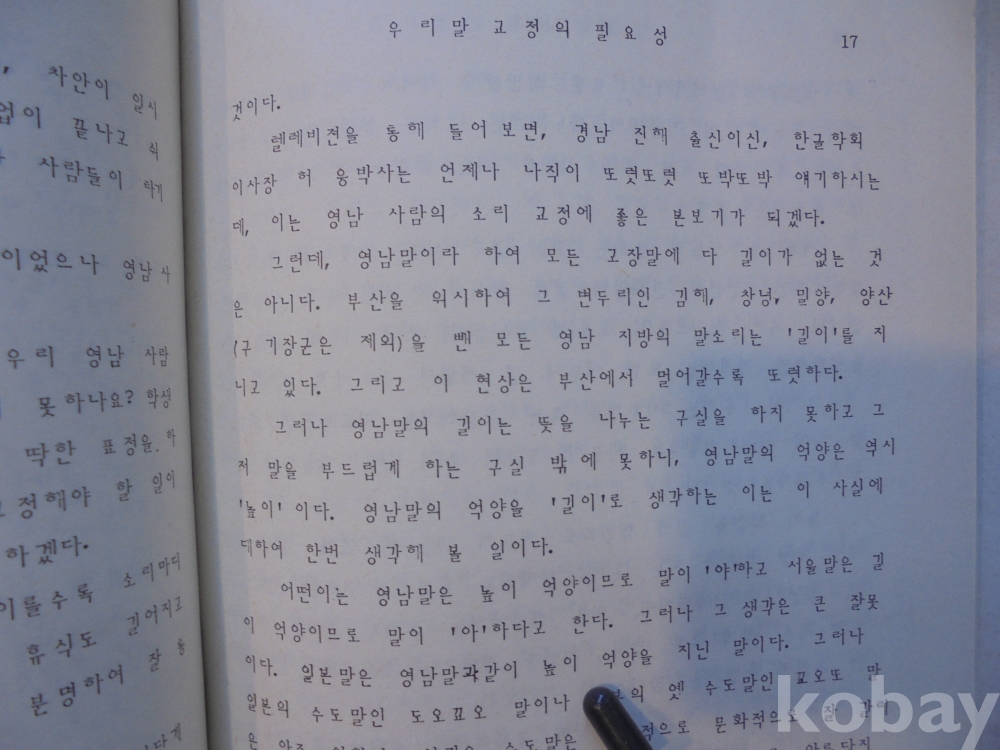 차안이 일시
업이 끝나고 쉬
사람들이 타게
이었으나 영남 사
우리 영남 사람
못하나요? 학생
딱한 표정을 하
고정해야 할 일이
하겠다.
이를수록 소리마디
휴식도 길어지고
분명하여 잘 통
우리말 고정의 필요성
17
것이다.
텔레비젼을 통해 들어 보면, 경남 진해 출신이신, 한글학회
이사장 허 웅박사는 언제나 나직이 또렷또렷 또박또박 얘기하시는
데, 이는 영남 사람의 소리 교정에 좋은 본보기가 되겠다.
그런데, 영남말이라 하여 모든 고장말에 다 길이가 없는 것
은 아니다. 부산을 위시하여 그 변두리인 김해, 창녕, 밀양, 양산
(구 기장군은 제외)을 뺀 모든 영남 지방의 말소리는 '길이'를 지
니고 있다. 그리고 이 현상은 부산에서 멀어갈수록 또렷하다.
그러나 영남말의 길이는 뜻을 나누는 구실을 하지 못하고 그
저 말을 부드럽게 하는 구실 밖에 못하니, 영남말의 억양은 역시
'높이' 이다. 영남말의 억양을 '길이'로 생각하는 이는 이 사실에
대하여 한번 생각해 볼 일이다.
어떤이는 영남말은 높이 억양이므로 말이 '야'하고 서울말은 길
이 억양이므로 말이 '아'하다고 한다. 그러나 그 생각은 큰 잘못
이다. 일본말은 영남말과같이 높이 억양을 지닌 말이다. 그러나
일본의 수도말인 도오꾜오 말이나 의 옛 수도말인 꾜오또 말
은 수도말은 적으로 문화적으로 잘
kobay